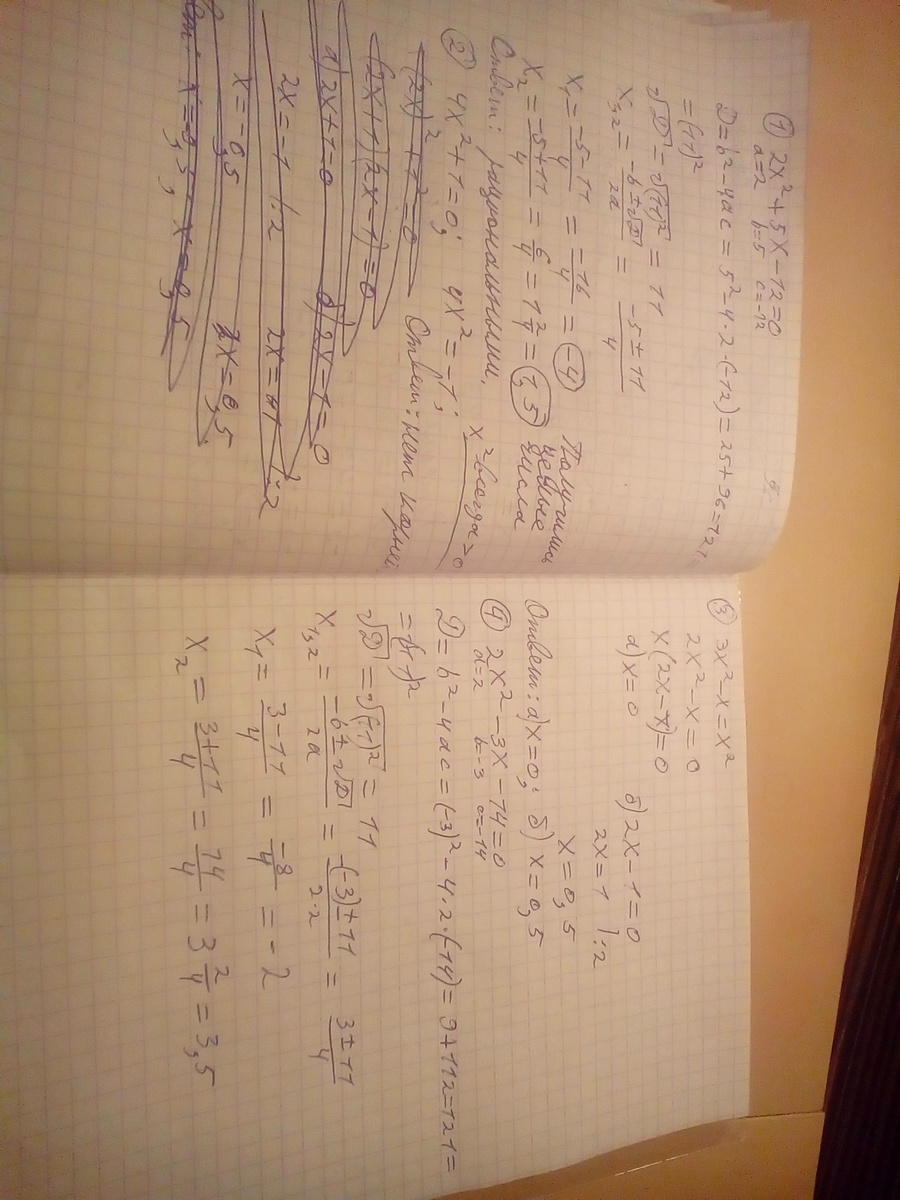 ① 2x² + 5x - 12 = 0
a=2 b=5 c=-12
D = b² - 4ac = 5² - 4·2·(-12) = 25 + 96 = 121 =
= (11)²
√D = √(11)² = 11
x₁,₂ = (-b ± √D)/2a = (-5 ± 11)/4
x₁ = (-5 - 11)/4 = -16/4 = -4
x₂ = (-5 + 11)/4 = 6/4 = 1 2/4 = 1,5
Получились
целые
числа
Ответ: рациональными.
② 4x² + 1 = 0; 4x² = -1; x² всегда > 0
(2x)² + 1² = 0 Ответ: нет корней
(2x+1)(2x-1) = 0
а) 2x+1=0 б) 2x-1=0
2x = -1 |:2 2x = 1 |:2
x = -0,5 x = 0,5
Отв: x = -0,5, x = 0,5
③ 3x² - x = x²
2x² - x = 0
x(2x - 1) = 0
а) x = 0 б) 2x - 1 = 0
2x = 1 |:2
x = 0,5
Ответ: а) x = 0; б) x = 0,5
④ 2x² - 3x - 14 = 0
a=2 b=-3 c=-14
D = b² - 4ac = (-3)² - 4·2·(-14) = 9 + 112 = 121 =
= (11)²
√D = √(11)² = 11
x₁,₂ = (-b ± √D)/2a = (-(-3) ± 11)/2·2 = (3 ± 11)/4
x₁ = (3 - 11)/4 = -8/4 = -2
x₂ = (3 + 11)/4 = 14/4 = 3 2/4 = 3,5